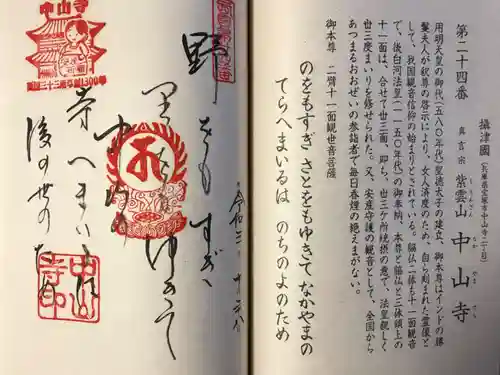 第二十四番
攝津國
(兵庫県宝塚市中山寺二丁目)
真言宗
紫雲山 中山寺
しうんざん なかやまでら
用明天皇の御代(五八〇年代)聖徳太子の建立、御本尊はインドの勝
鬘夫人が釈尊の啓示により、女人済度のため、自ら刻まれた霊像と
して、我国観音信仰の始まりとされている。脇仏二体も十一面観音
で、後白河法皇(一一五〇年代)の御奉納、本尊と脇仏と三体頭上の
十一面は、合せて丗三面、即ち、丗三ケ所統摂の意で、法皇親しく
丗三度まいりを修せられた。又、安産守護の観音として、全国から
あつまるおおぜいの参詣者で毎日春煙の絶えまがない。
御本尊 二臂十一面観世音菩薩
のをもすぎ さとをもゆきて なかやまの
てらへまいるは のちのよのため
中山寺
西国三十三所草創1300年
令和三・十・二六
野をもすぎ
里をもゆきて
中山の
寺へまいるは
後の世のため
中山寺印